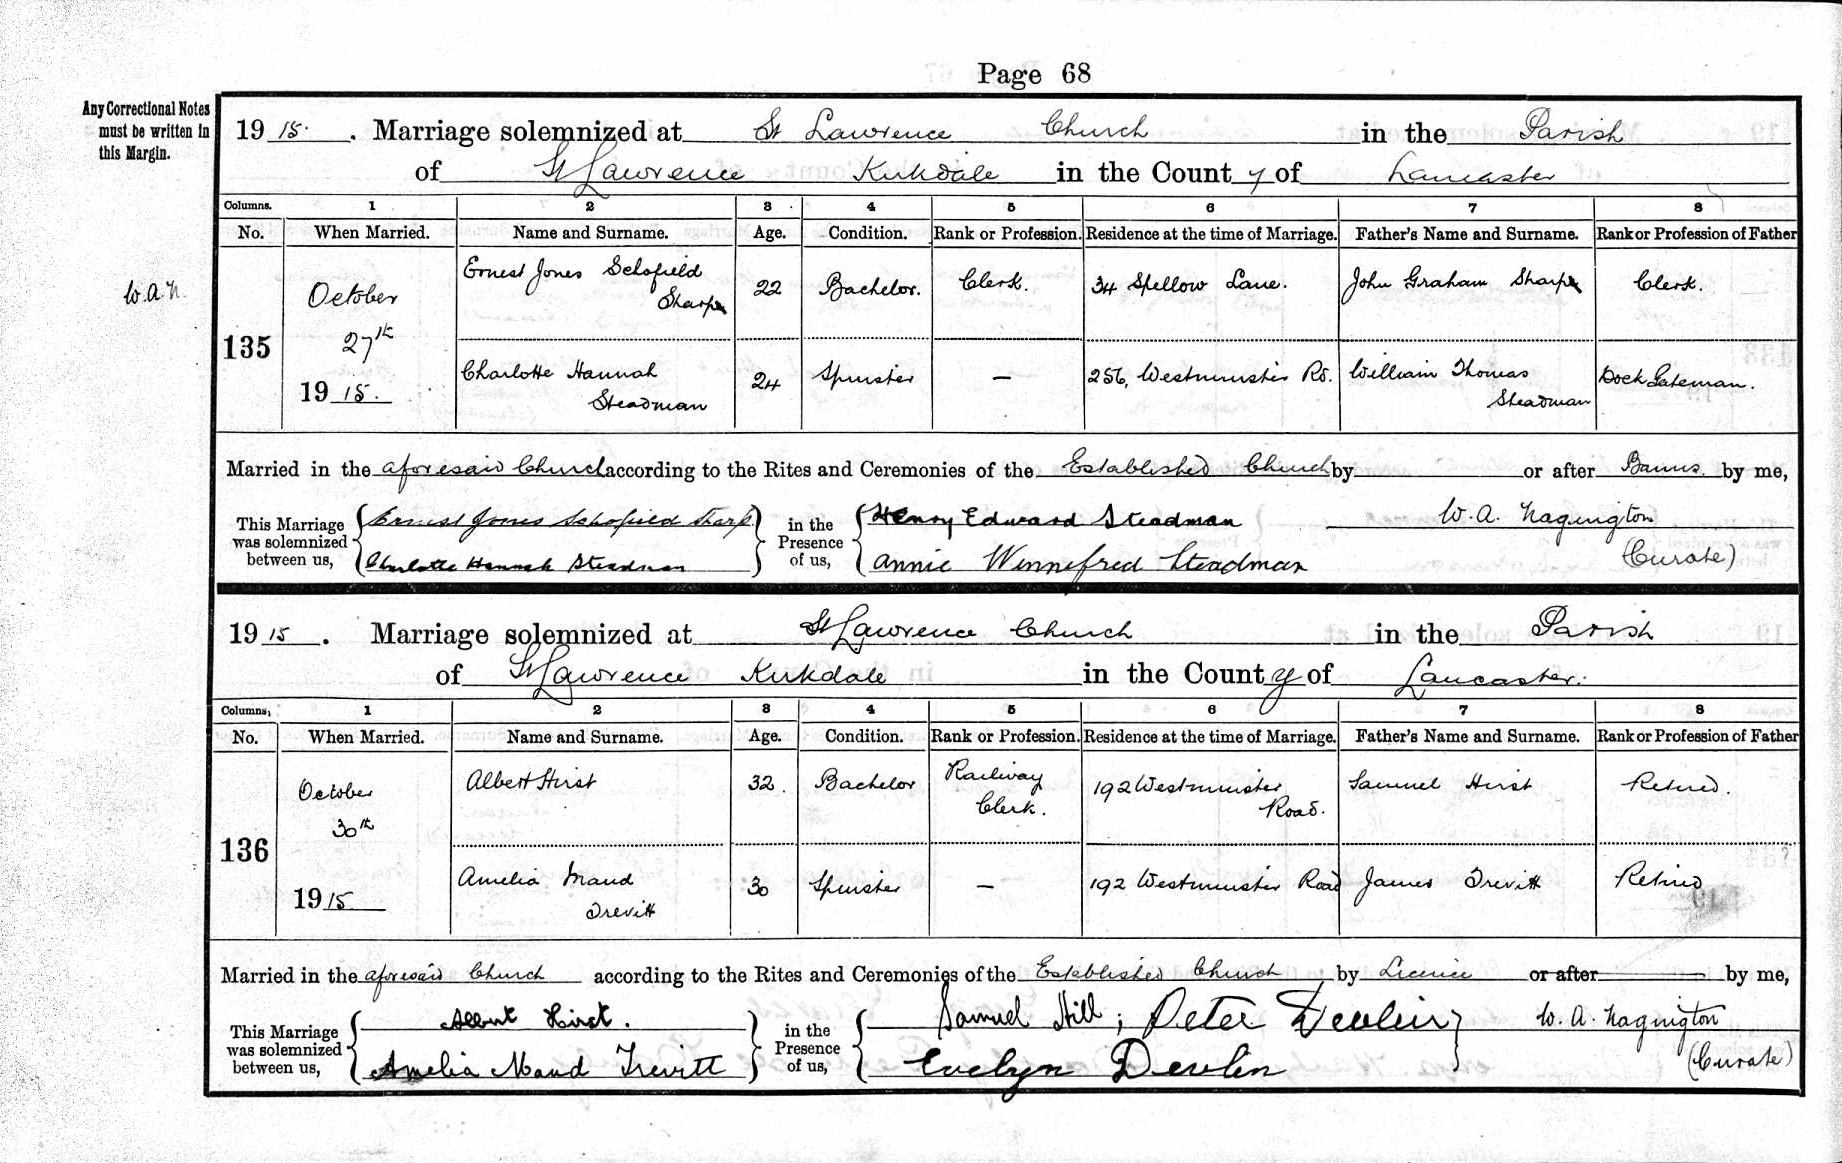 Page 68
Any Correctional Notes
must be written in
this Margin.
1915. Marriage solemnized at St Lawrence Church in the Parish
of St Lawrence Kirkdale in the County of Lancaster
Columns. 1 2 3 4 5 6 7 8
No. When Married. Name and Surname. Age. Condition. Rank or Profession. Residence at the time of Marriage. Father's Name and Surname. Rank or Profession of Father
W.A.N.
135 October 27th 1915. Ernest Jones Schofield Sharp 22 Bachelor. Clerk. 34 Spellow Lane. John Graham Sharp Clerk.
Charlotte Hannah Steadman 24 Spinster — 256, Westminster Rd. William Thomas Steadman Dock Gateman.
Married in the aforesaid Church according to the Rites and Ceremonies of the Established Church by or after Banns. by me,
This Marriage was solemnized between us, Ernest Jones Schofield Sharp in the Presence of us, Henry Edward Steadman W. A. Nagington
Charlotte Hannah Steadman Annie Winnefred Steadman (Curate)
1915. Marriage solemnized at St Lawrence Church in the Parish
of St Lawrence Kirkdale in the County of Lancaster.
Columns, 1 2 3 4 5 6 7 8
No. When Married. Name and Surname. Age. Condition. Rank or Profession. Residence at the time of Marriage. Father's Name and Surname. Rank or Profession of Father
136 October 30th 1915 Albert Hirst 32. Bachelor Railway Clerk. 192 Westminster Road. Samuel Hirst Retired.
Amelia Maud Trevitt 30 Spinster — 192 Westminster Road James Trevitt Retired
Married in the aforesaid Church according to the Rites and Ceremonies of the Established Church by Licence or after by me,
This Marriage was solemnized between us, Albert Hirst. in the Presence of us, Samuel Hill; Peter Devlin W. A. Nagington
Amelia Maud Trevitt Evelyn Devlin (Curate)